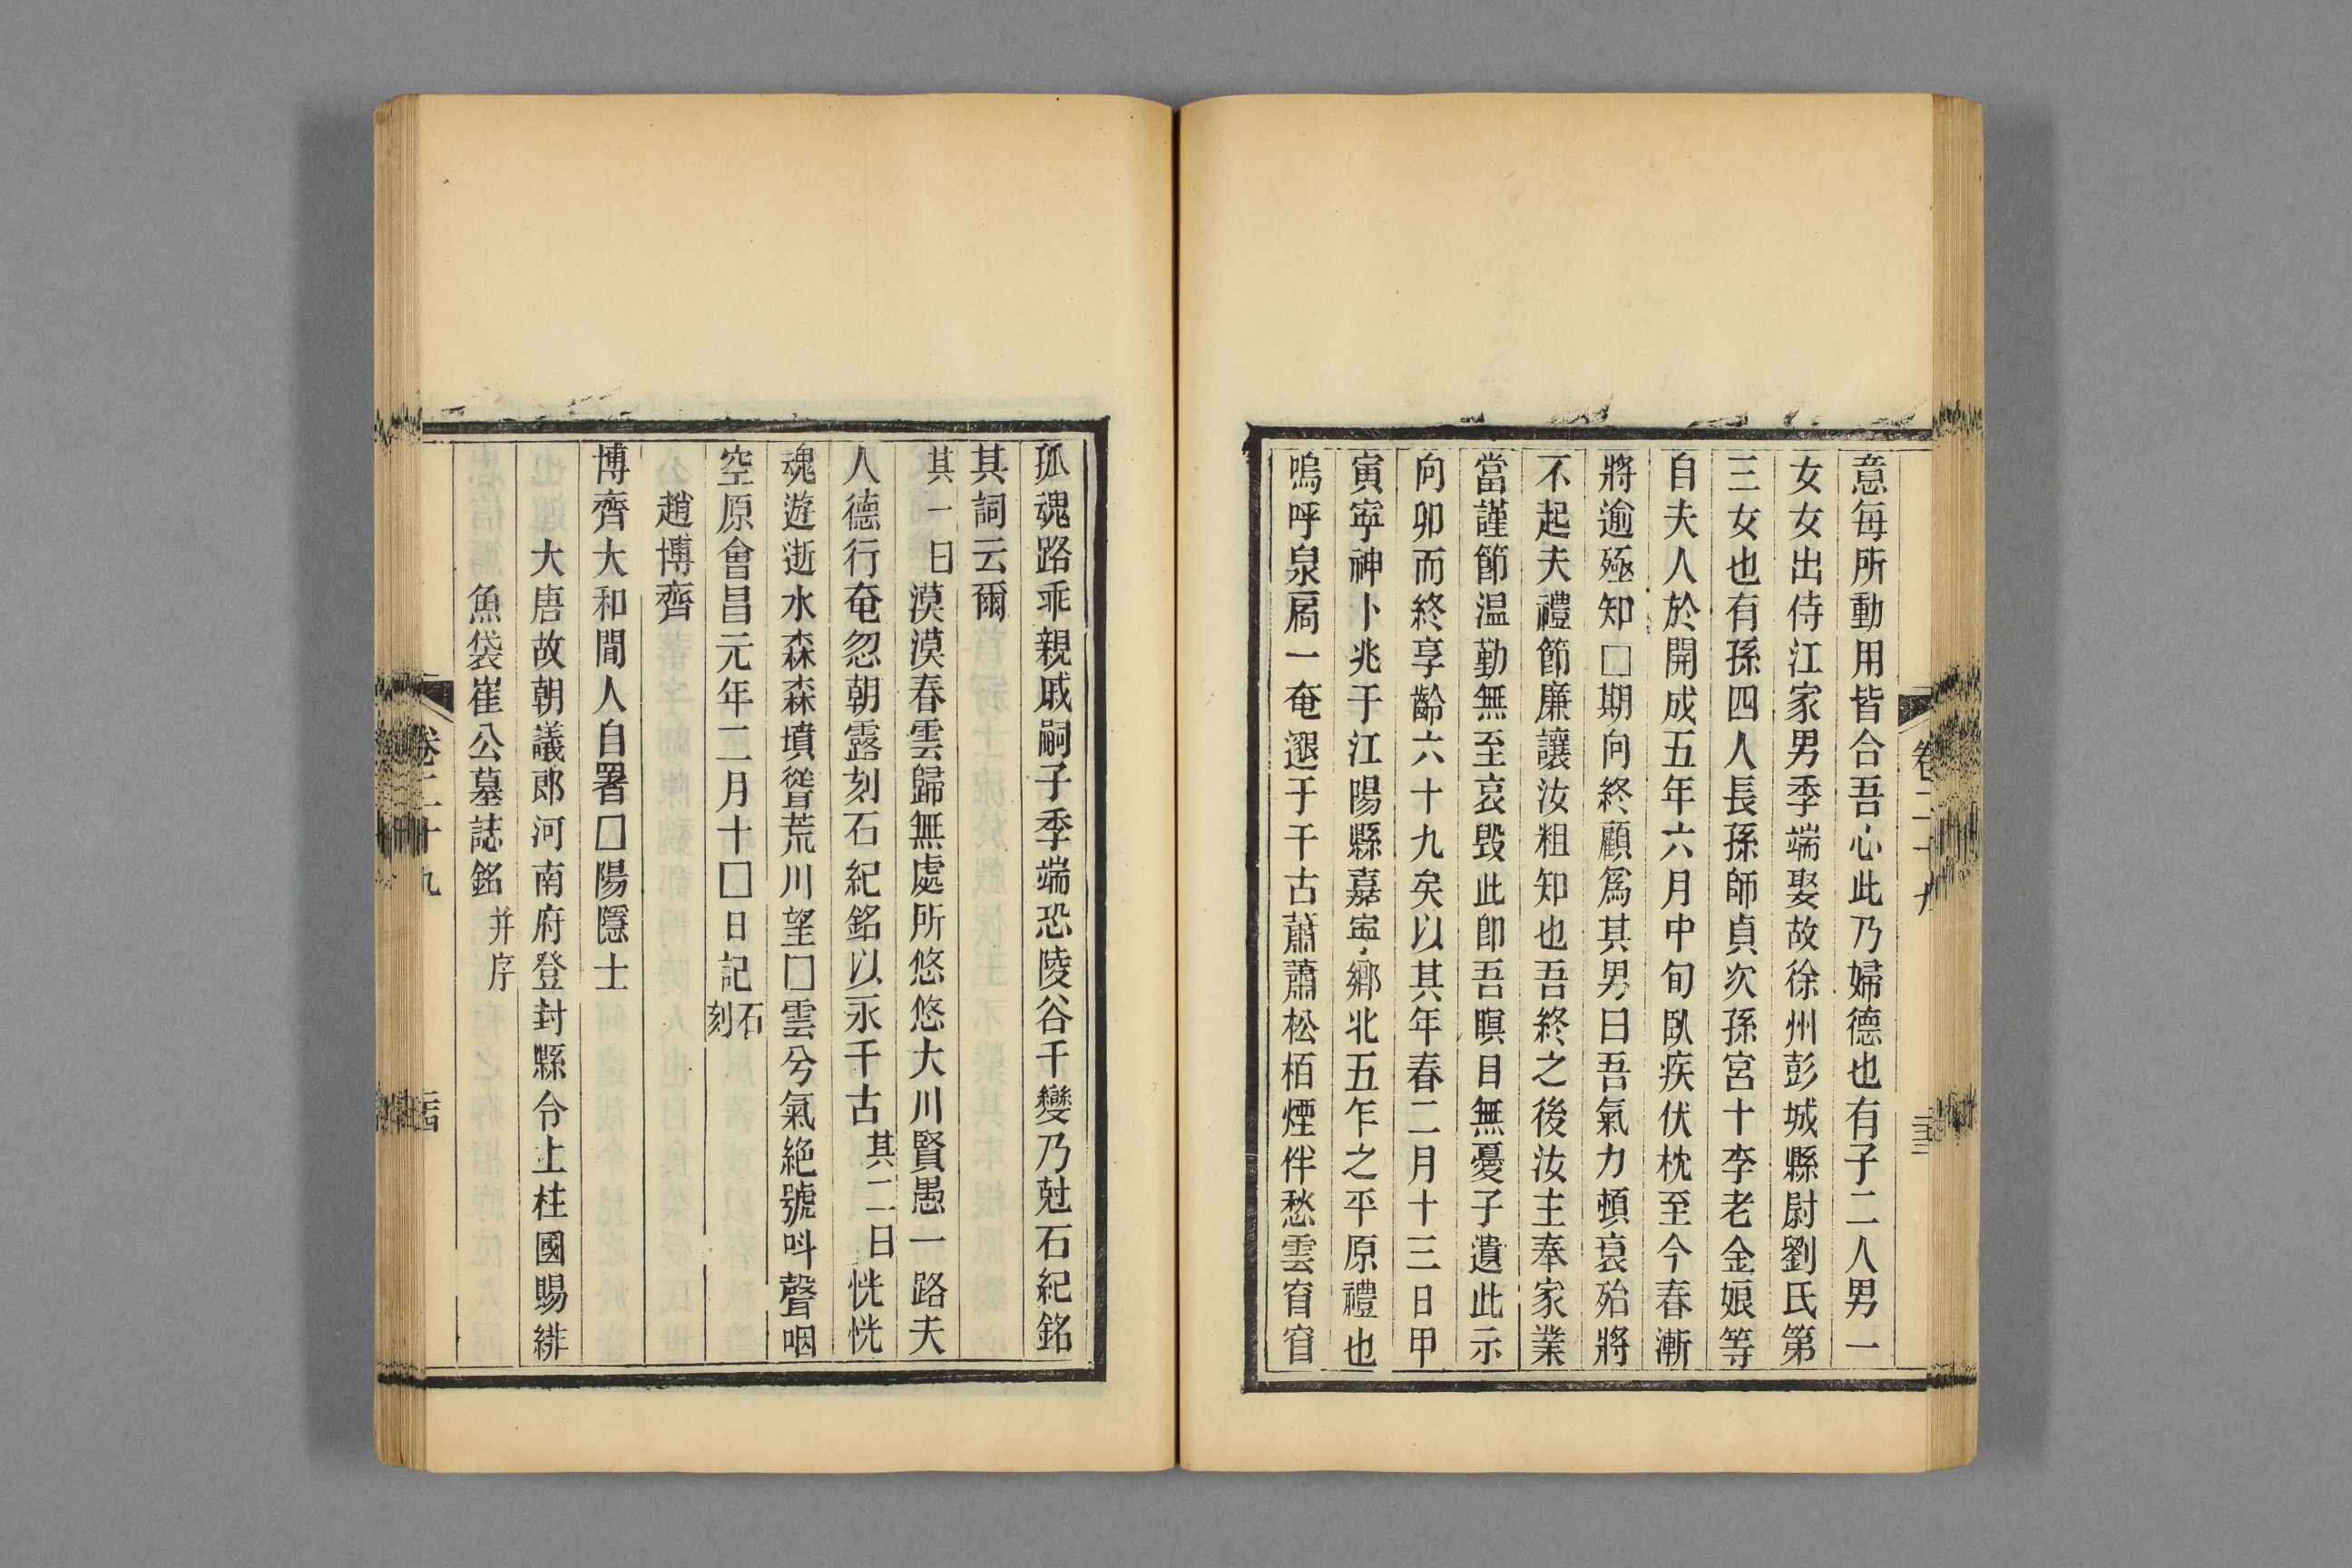 意每所動用皆合吾心此乃婦德也有子二人男一
女女出侍江家男季端娶故徐州彭城縣尉劉氏第
三女也有孫四人長孫師貞次孫宮十李老金娘等
自夫人於開成五年六月中旬臥疾伏枕至今春漸
將逾殛知□期向終顧爲其男曰吾氣力頓哀殆將
不起夫禮節廉讓汝粗知也吾終之後汝主奉家業
當謹節温勤無至哀毁此卽吾瞑目無憂子遺此示
向卯而終享齡六十九矣以其年春二月十三日甲
寅寧神卜兆于江陽縣嘉寧鄉北五乍之平原禮也
嗚呼泉扃一奄邈于千古蕭蕭松栢煙伴愁雲窅窅
卷二十九
孤魂路乖親戚嗣子季端恐陵谷千變乃尅石紀銘
其詞云爾
其一曰漠漠春雲歸無處所悠悠大川賢愚一路夫
人德行奄忽朝露刻石紀銘以永千古其二曰恍恍
魂遊逝水森森墳聳荒川望□雲兮氣絶號呌聲咽
空原會昌元年二月十□日記石刻
趙博齊
博齊大和間人自署□陽隱士
大唐故朝議郎河南府登封縣令上柱國賜緋
魚袋崔公墓誌銘并序
卷二十九